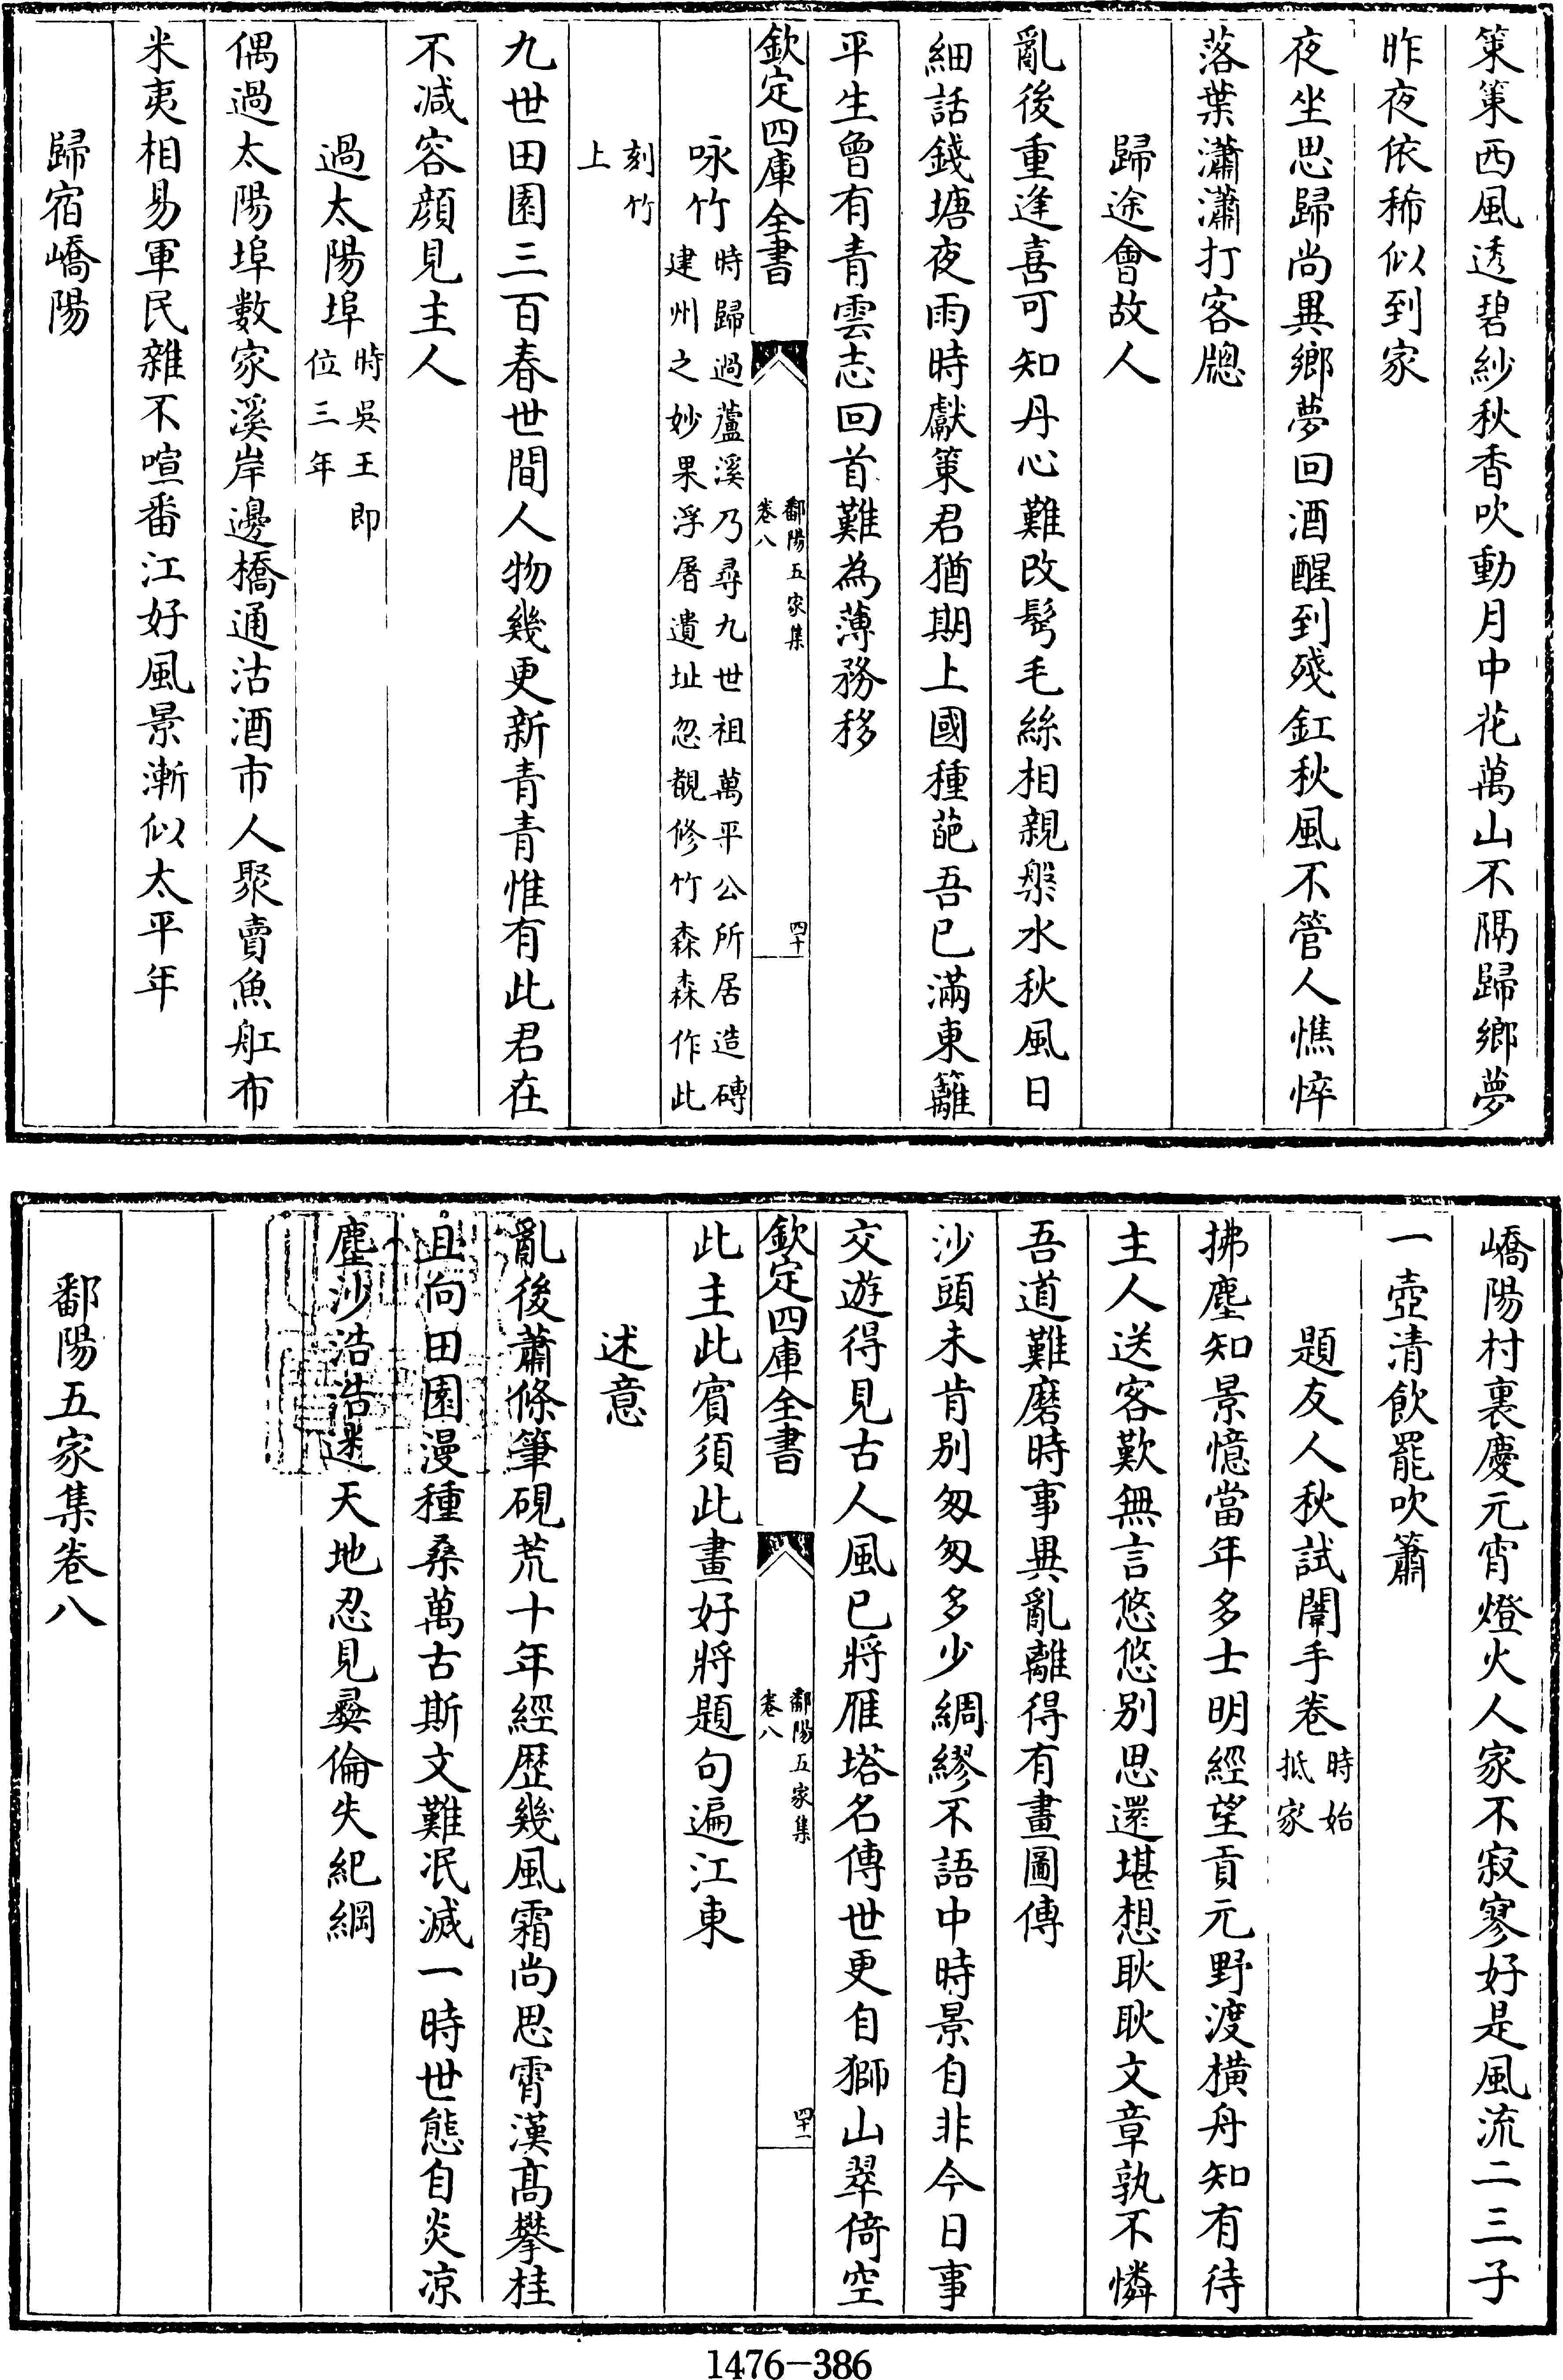 策策西風透碧紗秋香吹動月中花萬山不隔歸鄉夢
昨夜依稀似到家
夜坐思歸尚異鄉夢回酒醒到殘釭秋風不管人憔悴
落葉瀟瀟打客牕
歸途會故人
亂後重逢喜可知丹心難改鬂毛絲相親槃水秋風日
細話錢塘夜雨時獻策君猶期上國種葩吾已滿東籬
平生曾有青雲志回首難為薄務移
欽定四庫全書
鄱陽五家集
卷八
四十
咏竹
時歸過蘆溪乃尋九世祖萬平公所居造磚
建州之妙果浮屠遺址忽覩修竹森森作此
刻竹
上
九世田園三百春世間人物幾更新青青惟有此君在
不减容顔見主人
過太陽埠
時吳王即
位三年
偶過太陽埠數家溪岸邊橋通沽酒市人聚賣魚舡布
米夷相易軍民雜不喧番江好風景漸似太平年
歸宿嶠陽
嶠陽村裏慶元宵燈火人家不寂寥好是風流二三子
一壺清飲罷吹簫
題友人秋試闈手卷
時始
抵家
拂塵知景憶當年多士明經望貢元野渡橫舟知有待
主人送客歎無言悠悠别思還堪想耿耿文章孰不憐
吾道難磨時事異亂離得有畫圖傳
沙頭未肯别匆匆多少綢繆不語中時景自非今日事
交遊得見古人風已將雁塔名傳世更自獅山翠倚空
欽定四庫全書
鄱陽五家集
卷八
四十一
此主此賓須此畫好將題句遍江東
述意
亂後蕭條筆硯荒十年經歷幾風霜尚思霄漢髙攀桂
且向田園漫種桑萬古斯文難泯滅一時世態自炎凉
塵沙浩浩迷天地忍見彛倫失紀綱
鄱陽五家集卷八
1476-386